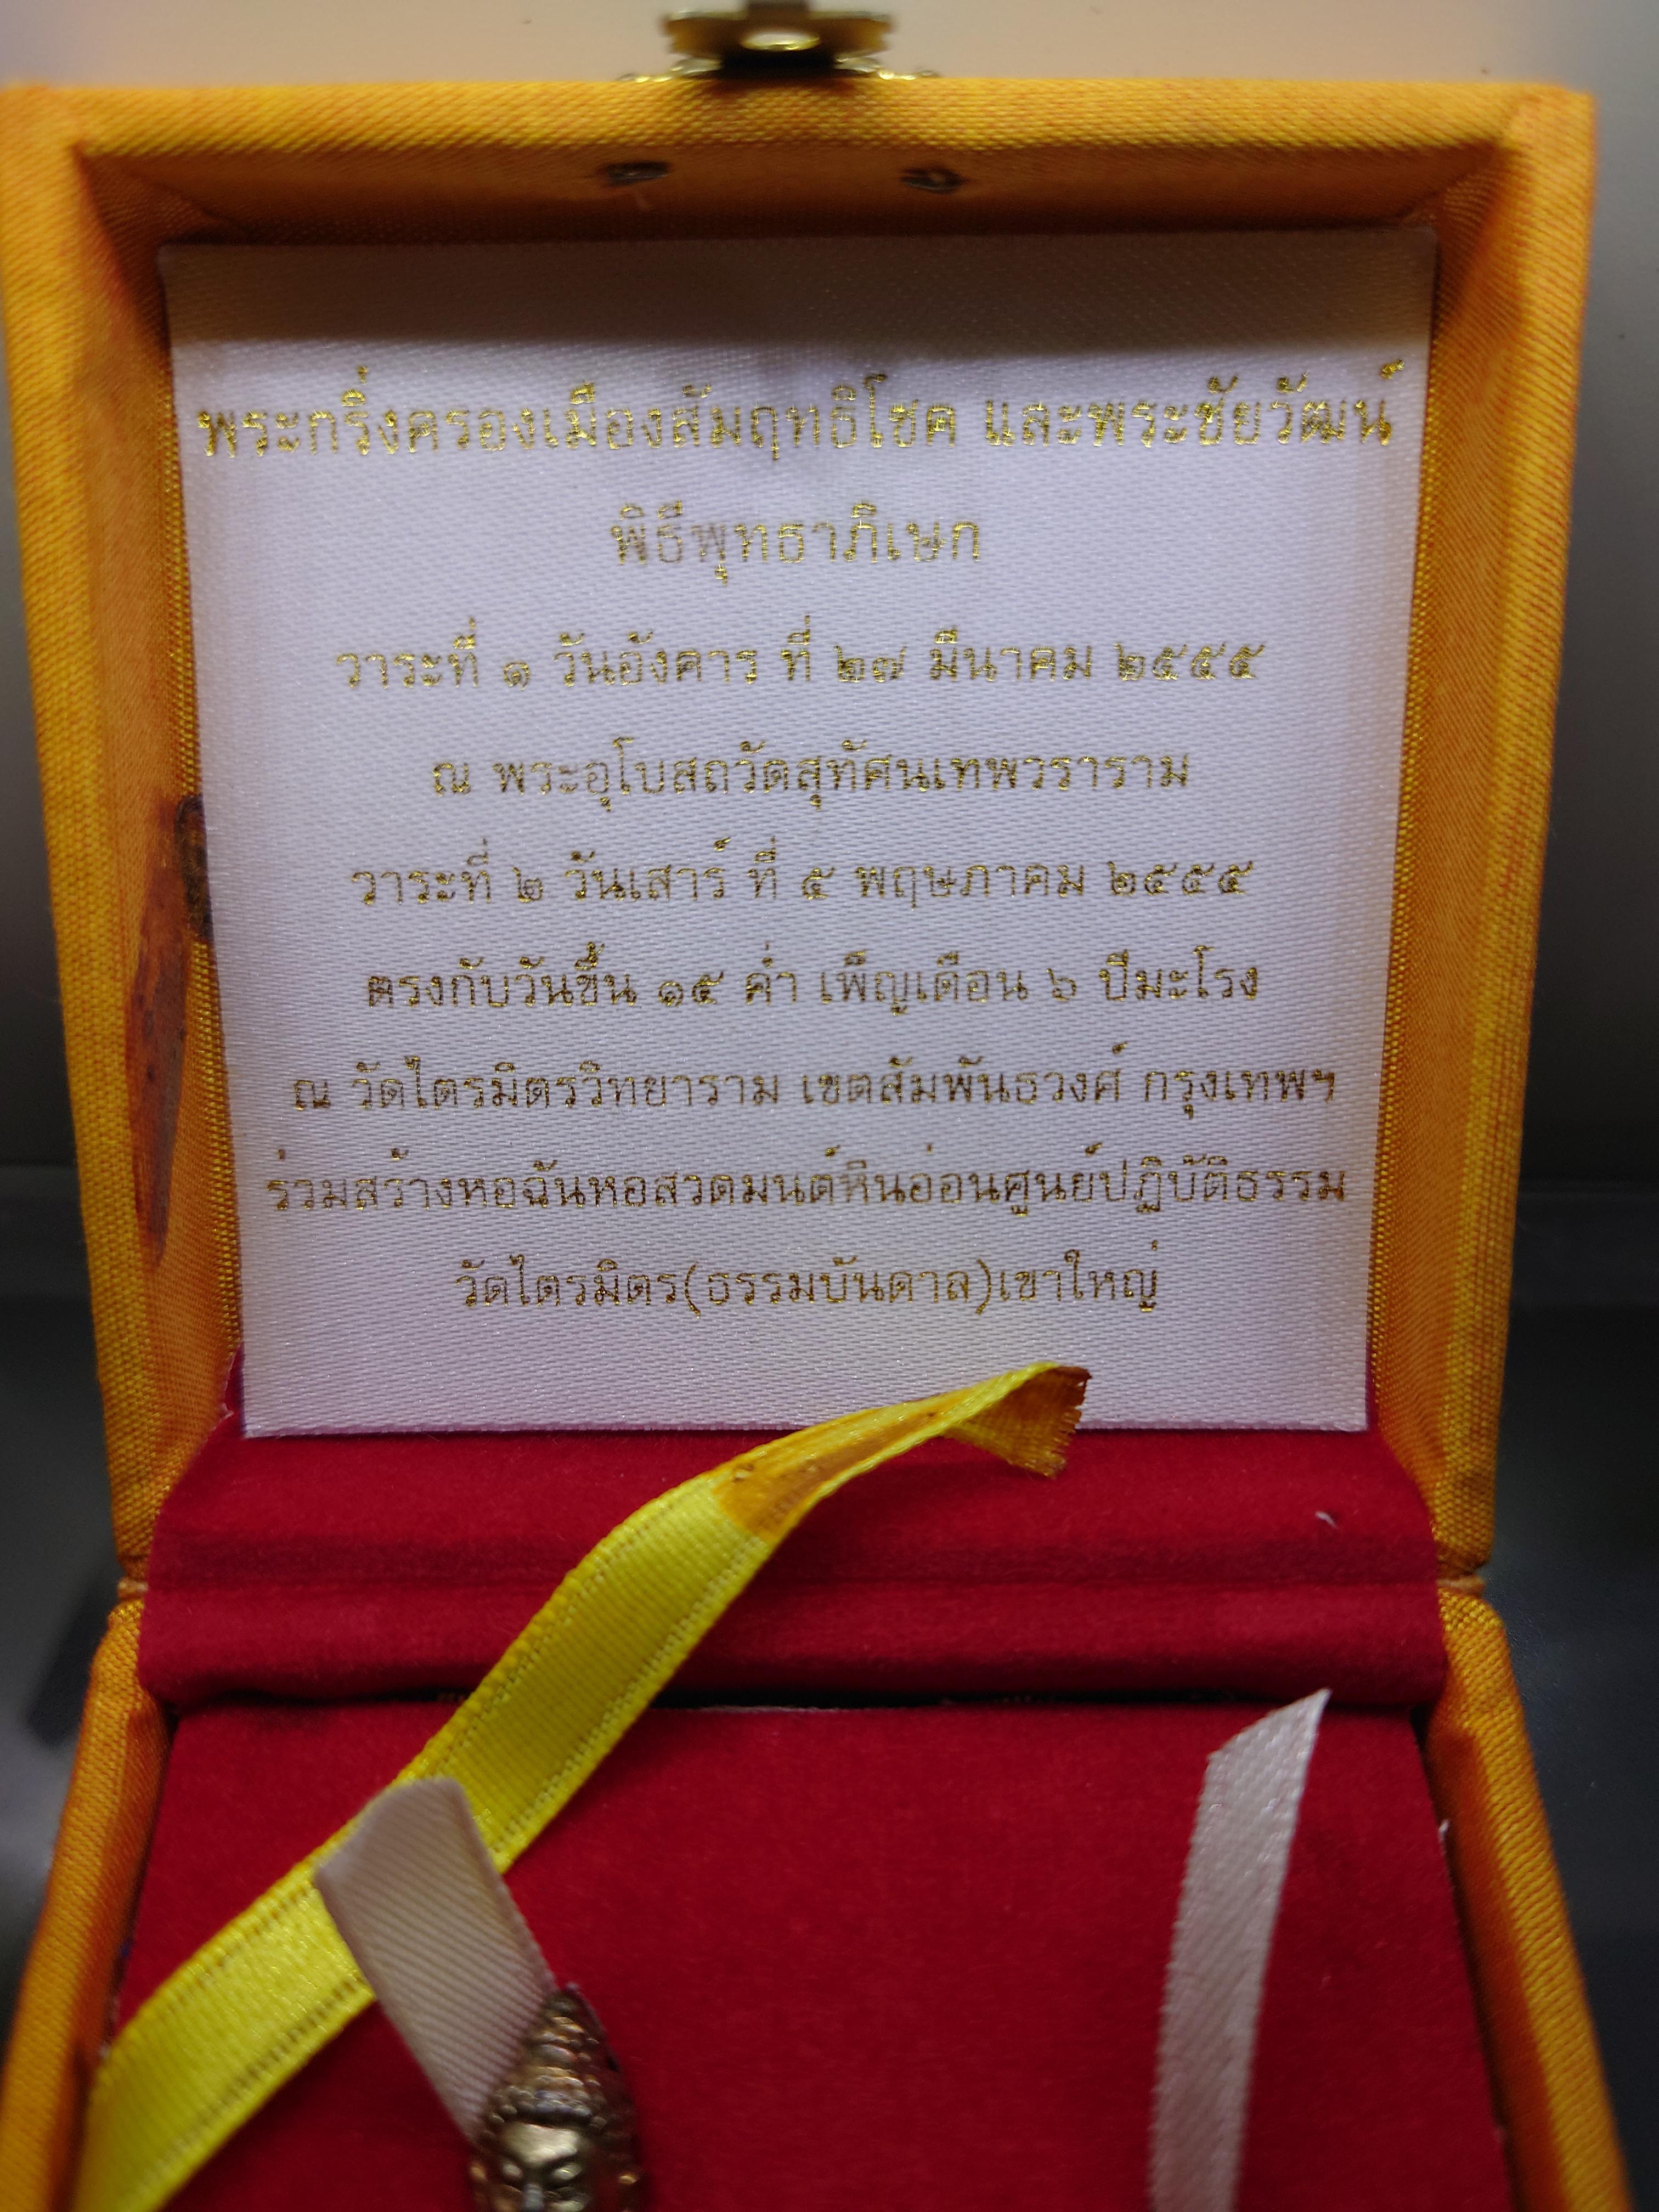 พระกริ่งครองเมืองสัมฤทธิโชค และพระชัยวัฒน์
พิธีพุทธาภิเษก
วาระที่ ๑ วันอังคาร ที่ ๒๗ มีนาคม ๒๕๕๕
ณ พระอุโบสถวัดสุทัศนเทพวราราม
วาระที่ ๒ วันเสาร์ ที่ ๕ พฤษภาคม ๒๕๕๕
ตรงกับวันขึ้น ๑๕ ค่ำ เพ็ญเดือน ๖ ปีมะโรง
ณ วัดไตรมิตรวิทยาราม เขตสัมพันธวงศ์ กรุงเทพฯ
ร่วมสร้างหอฉันหอสวดมนต์หินอ่อนศูนย์ปฏิบัติธรรม
วัดไตรมิตร(ธรรมบันดาล)เขาใหญ่